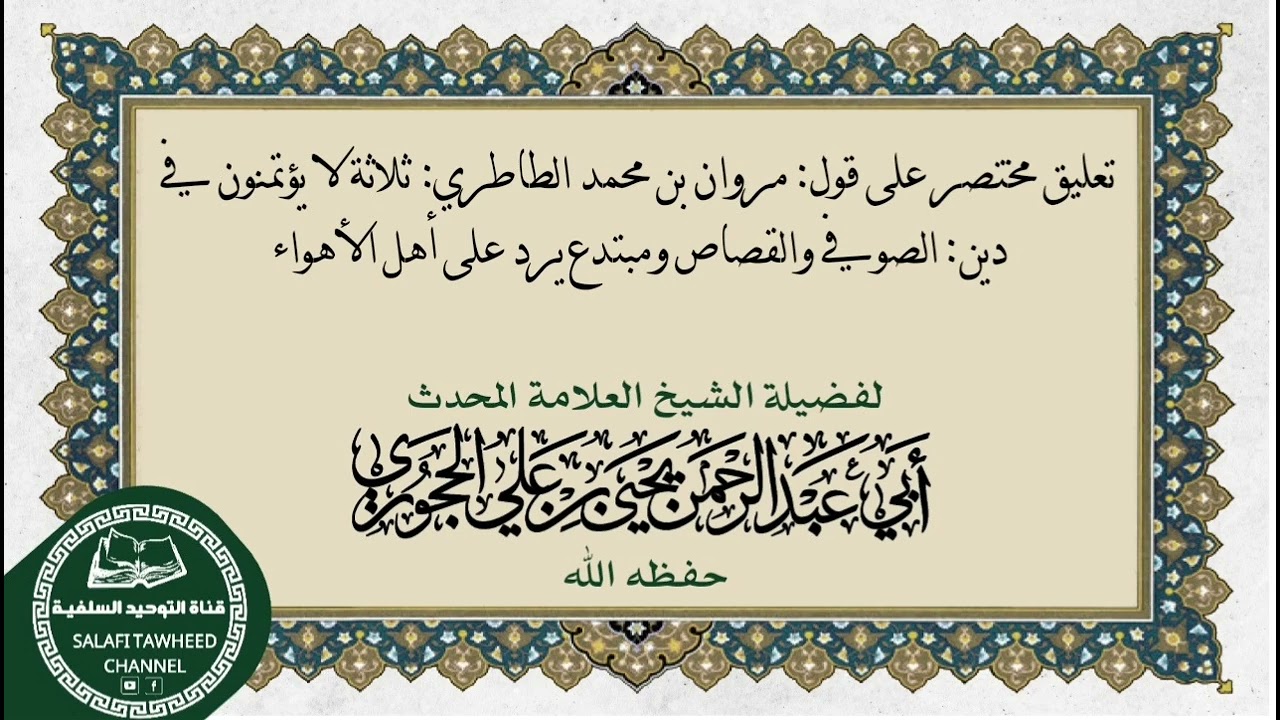 تعليق مختصر على قول: مروان بن محمد الطاطري: ثلاثة لا يؤتمنون في
دين: الصوفي والقصاص ومبتدع يرد على أهل الأهواء
لفضيلة الشيخ العلامة المحدث
أَبِي عَبْدِ الرَّحْمَنِ يَحْيَى بْنِ عَلِيٍّ الْحَجُورِيِّ
حفظه الله
قناة التوحيد السلفية
SALAFI TAWHEED
CHANNEL